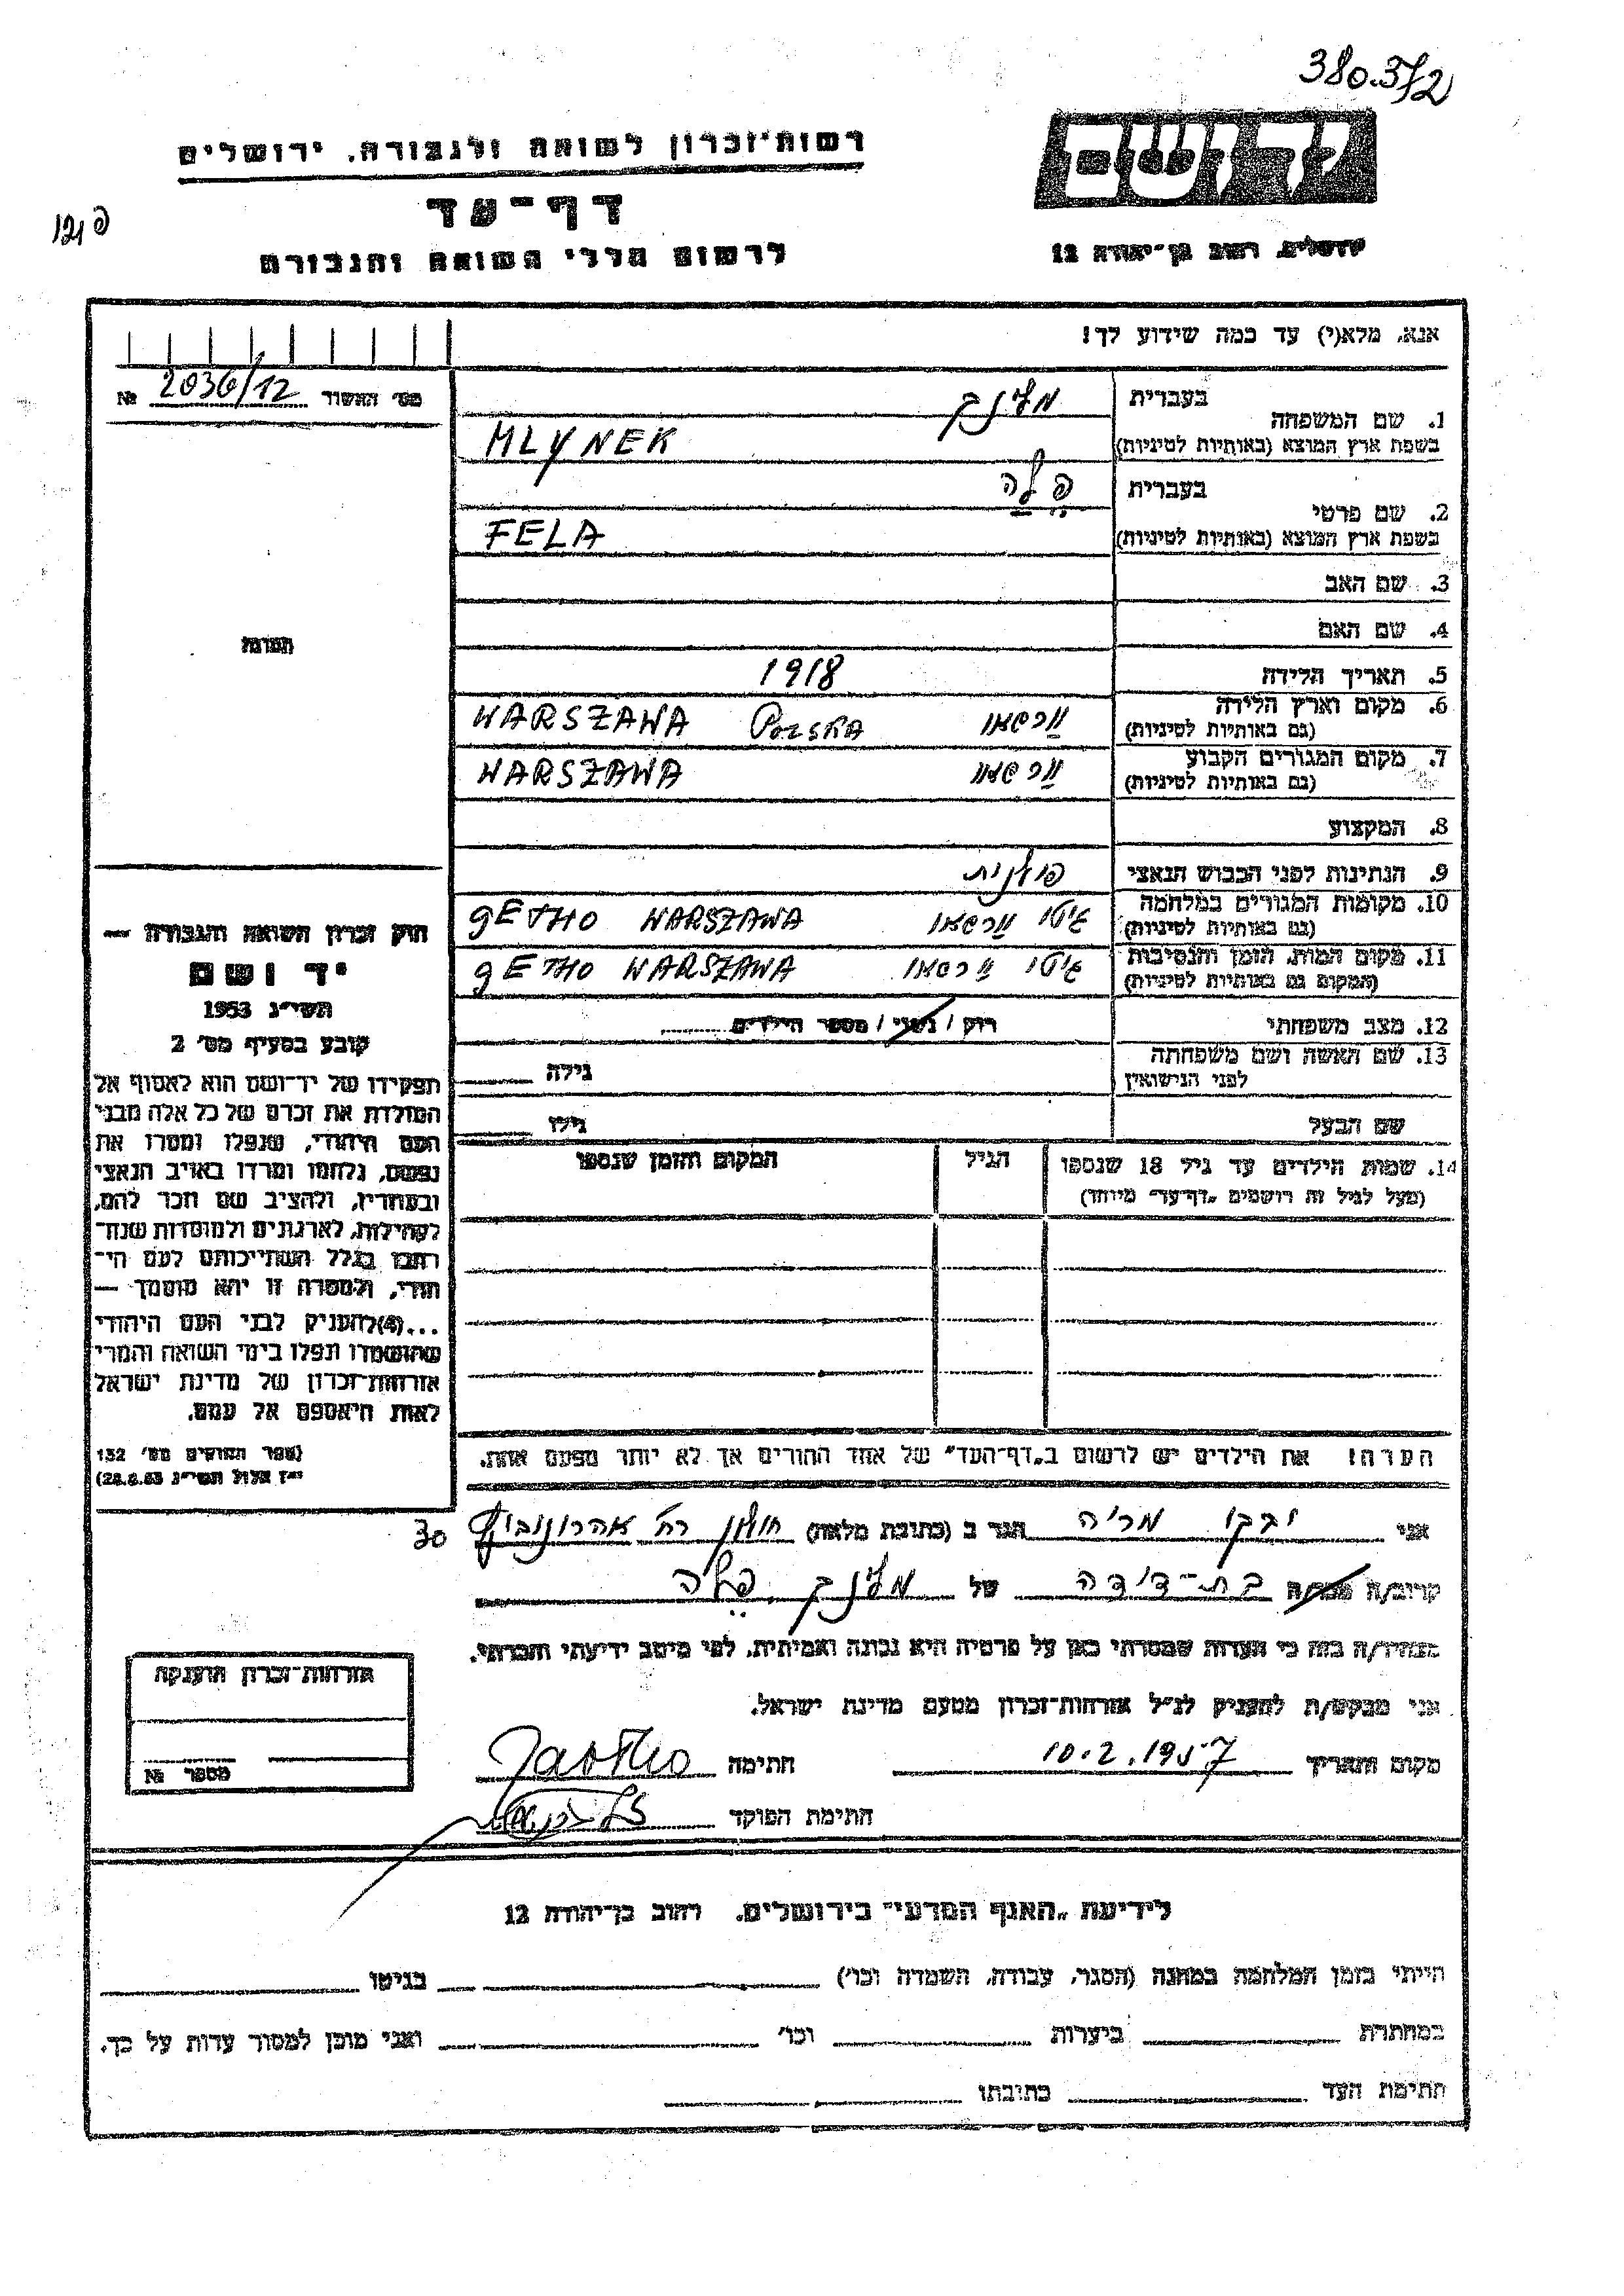 380.372
יד ושם
רשות־זכרון לשואה ולגבורה, ירושלים
ירושלים, רחוב בן־יהודה 12
דף־עד
לרשום חללי השואה והגבורה
אנא, מלא(י) עד כמה שידוע לך!
מס׳ האשור 2036/12 №
1. שם המשפחה
בעברית מלינק
בשפת ארץ המוצא (באותיות לטיניות) MLYNEK
2. שם פרטי
בעברית פלה
בשפת ארץ המוצא (באותיות לטיניות) FELA
3. שם האב
4. שם האם
התמונה
5. תאריך הלידה 1918
6. מקום וארץ הלידה ורשאו POLSKA WARSZAWA
(גם באותיות לטיניות)
7. מקום המגורים הקבוע ורשאו WARSZAWA
(גם באותיות לטיניות)
8. המקצוע
9. הנתינות לפני הכבוש הנאצי פולנית
10. מקומות המגורים במלחמה גיטו ורשאו GETHO WARSZAWA
(גם באותיות לטיניות)
11. מקום המות, הזמן והנסיבות גיטו ורסאו GETHO WARSZAWA
(המקום גם באותיות לטיניות)
12. מצב משפחתי רוק / נשוי / מספר הילדים
13. שם האשה ושם משפחתה
לפני הנישואין
גילה
שם הבעל גילו
14. שמות הילדים עד גיל 18 שנספו הגיל המקום והזמן שנספו
(מעל לגיל זה רושמים "דף־עד" מיוחד)
חוק זכרון השואה והגבורה —
יד ושם
תשי״ג 1953
קובע בסעיף מס׳ 2
תפקידו של יד־ושם הוא לאסוף אל
המולדת את זכרם של כל אלה מבני
העם היהודי, שנפלו ומסרו את
נפשם, נלחמו ומרדו באויב הנאצי
ובעוזריו, ולהציב שם וזכר להם,
לקהילות, לארגונים ולמוסדות שנח־
רבו בגלל השתייכותם לעם הי־
הודי, ולמטרה זו יהא מוסמך —
...(4) להעניק לבני העם היהודי
שהושמדו ונפלו בימי השואה והמרי
אזרחות־זכרון של מדינת ישראל
לאות היאספם אל עמם.
(ספר החוקים מס׳ 132
י״ז אלול תשי״ג 28.8.53)
הערה! את הילדים יש לרשום ב"דף־העד" של אחד ההורים אך לא יותר מפעם אחת.
אני מריה הגר ב (כתובת מלאה) חולון רח׳ אהרונוביץ 30
קרוב/ה מכר/ה בת־דודה של מלינק פלה
מצהיר/ה בזה כי העדות שמסרתי כאן על פרטיה היא נכונה ואמיתית, לפי מיטב ידיעתי והכרתי.
אני מבקש/ת להעניק לנ״ל אזרחות־זכרון מטעם מדינת ישראל.
מקום ותאריך 10.2.1957 חתימה
חתימת הפוקד
אזרחות־זכרון הוענקה
מספר №
לידיעת "האגף המדעי" בירושלים, רחוב בן־יהודה 12
הייתי בזמן המלחמה במחנה (הסגר, עבודה, השמדה וכו׳) בגיטו
במחתרת ביערות וכו׳ ואני מוכן למסור עדות על כך.
חתימת העד כתובתו